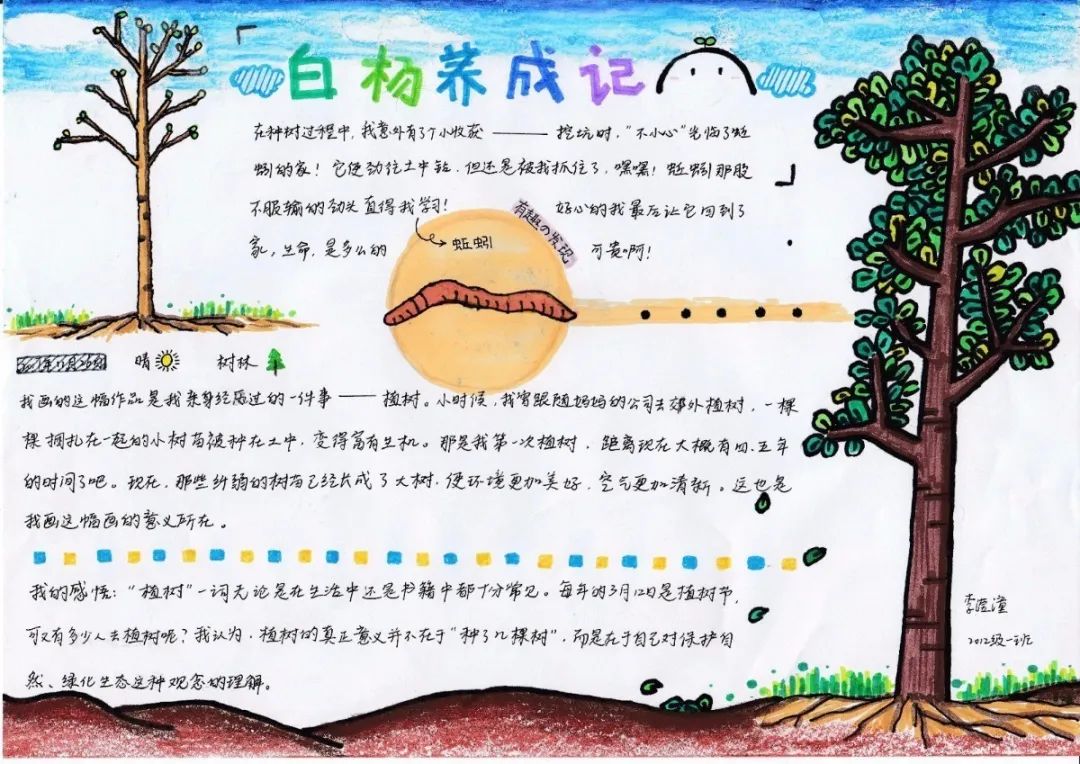 白杨养成记
在种树过程中,我意外有了个小收获 —— 挖坑时,"不小心"光临了蚯
蚓的家!它使劲往土中钻,但还是被我抓住了,嘿嘿!蚯蚓那股
不服输的劲头直得我学习! 好心的我最后让它回到了
家,生命,是多么的 可贵啊!
有趣の发现
蚯蚓
晴 树林
我画的这幅作品是我亲身经历过的一件事 —— 植树。小时候,我曾跟随妈妈的公司去郊外植树,一棵
棵捆扎在一起的小树苗被种在土中,变得富有生机。那是我第一次植树,距离现在大概有四、五年
的时间了吧。现在,那些纤弱的树苗已经长成了大树,使环境更加美好,空气更加清新。这也是
我画这幅画的意义所在。
我的感悟:"植树"一词无论是在生活中还是书籍中都十分常见。每年的3月12日是植树节,
可又有多少人去植树呢?我认为,植树的真正意义并不在于"种了几棵树",而是在于自己对保护自
然、绿化生态这种观念的理解。
李滢潼
2012级一班